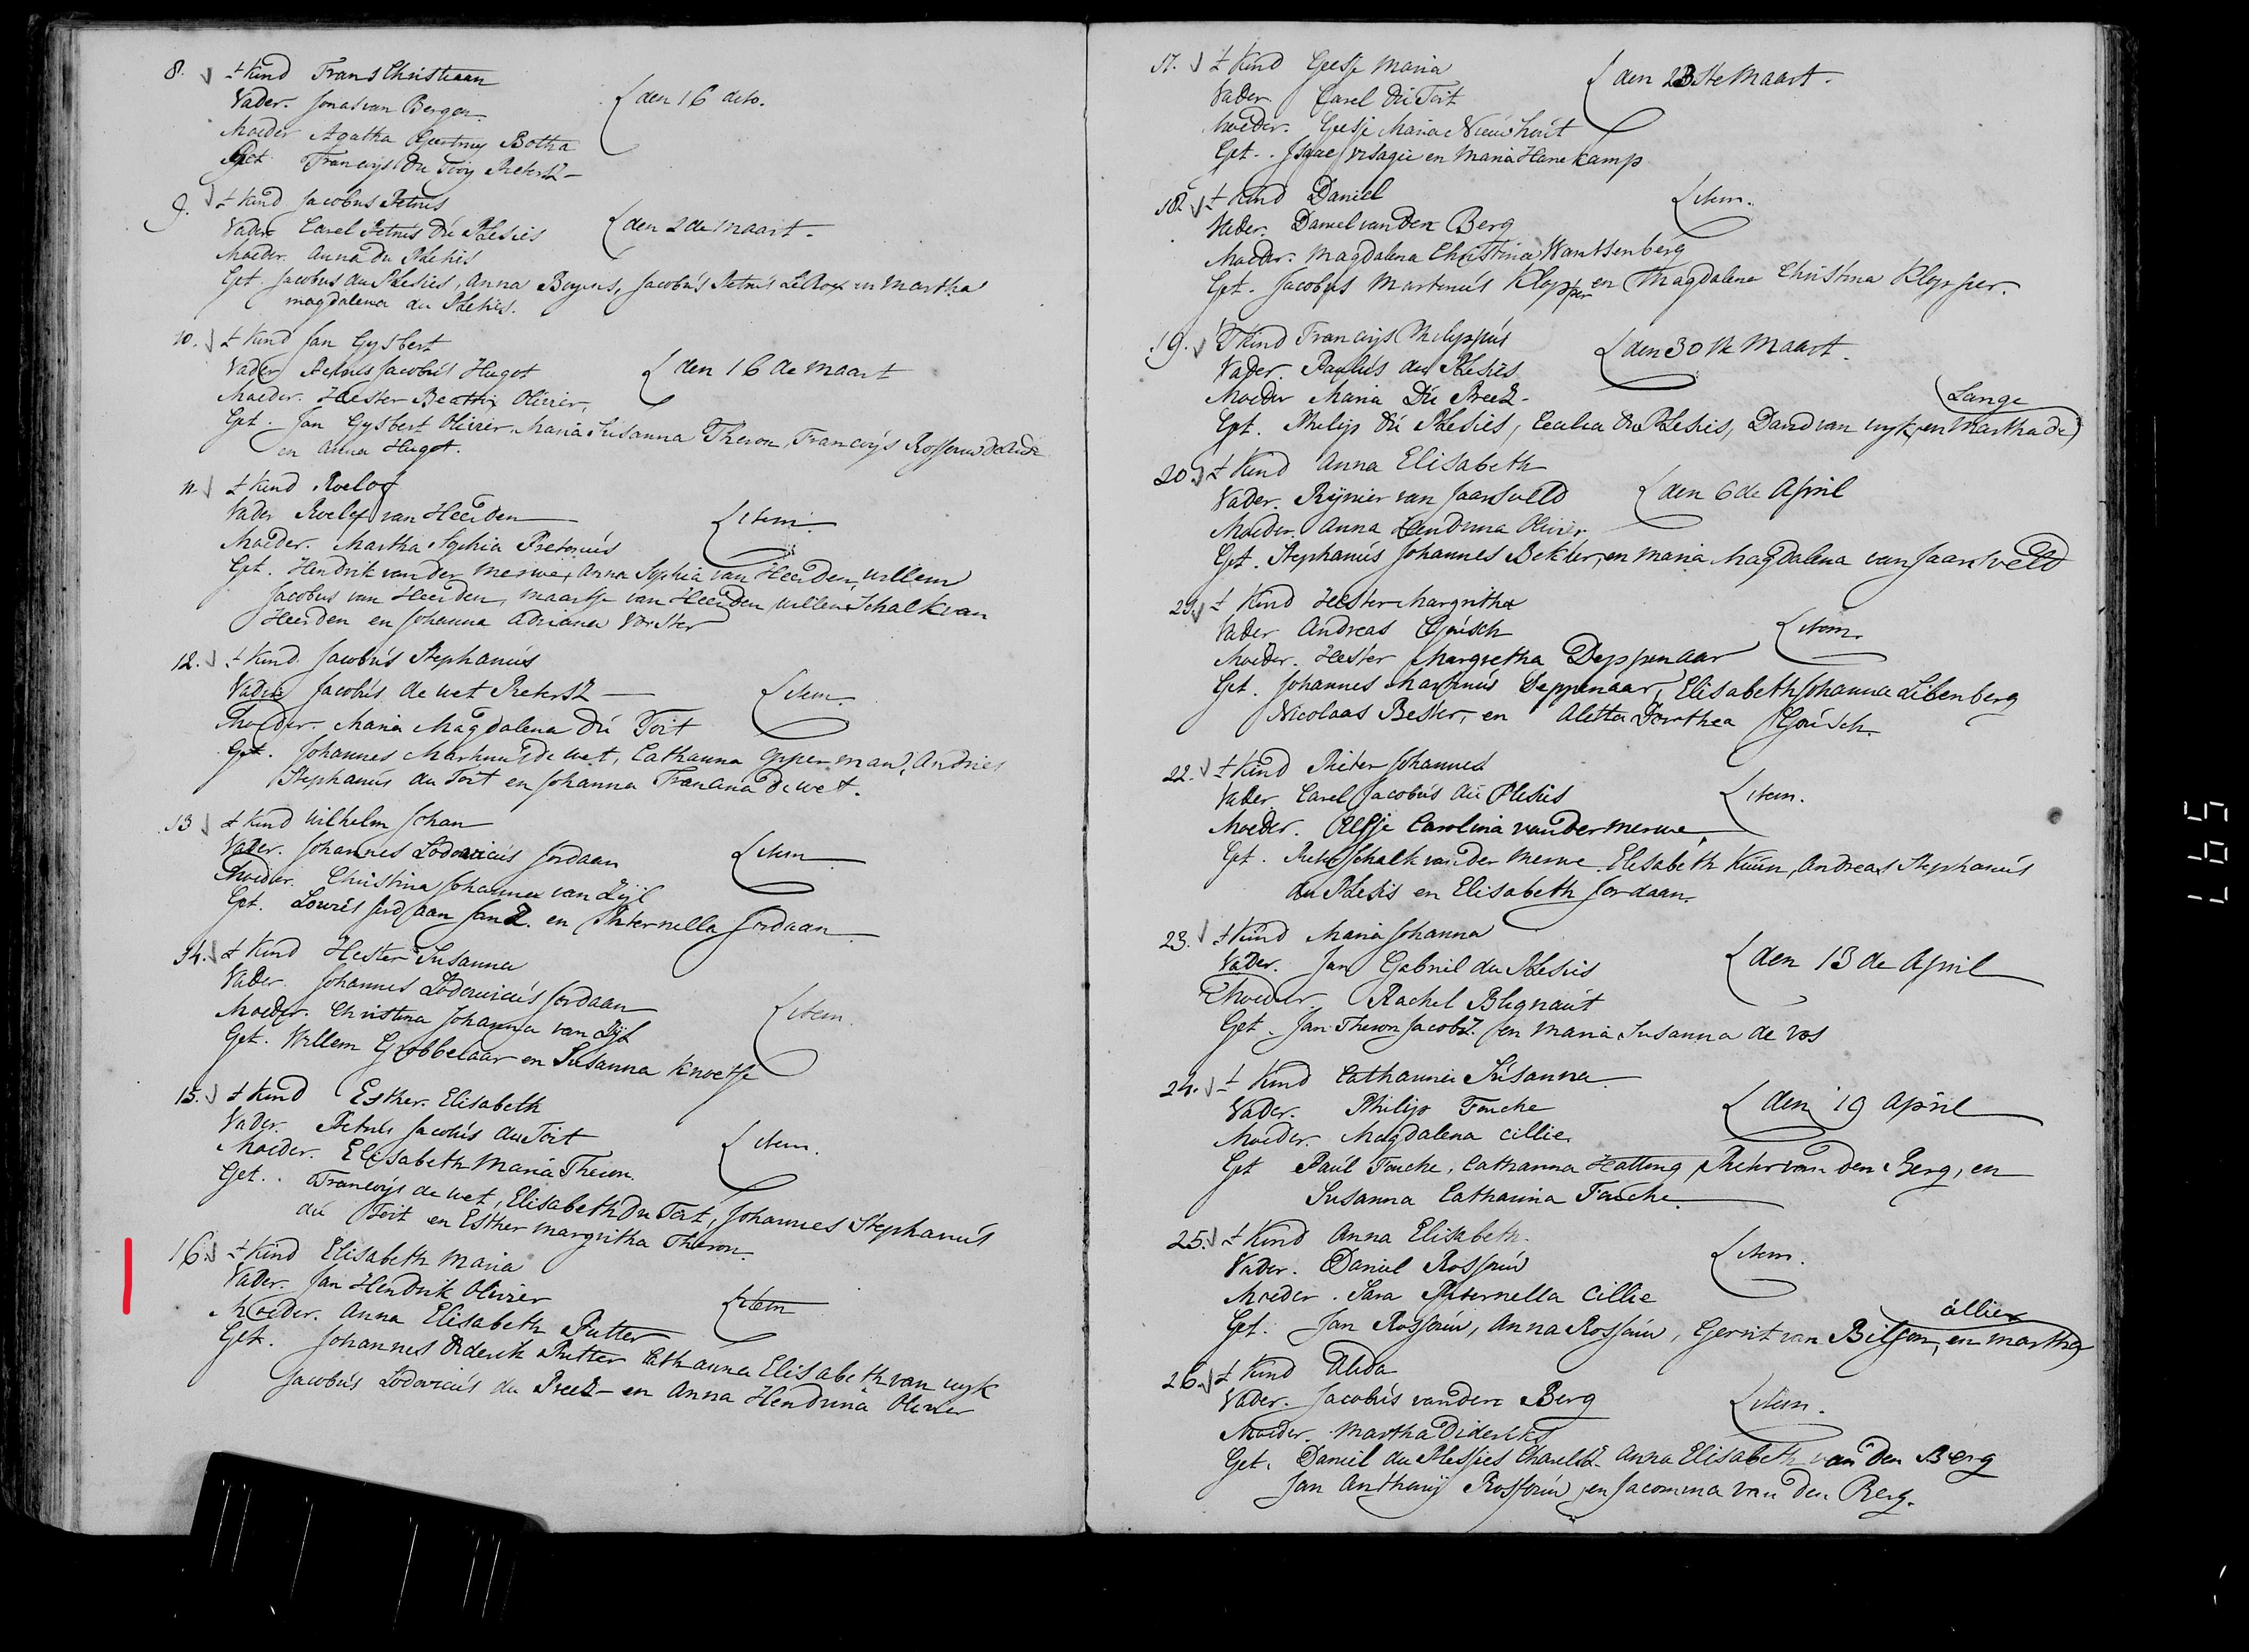 8. 't Kind Frans Christiaan
Vader. Jonas van Bergen { den 16 dito.
Moeder Agatha Geertruy Botha
Get. Francoys Du Tooy Pietersz -
9. 't Kind Jacobus Petrus
Vader Carel Petrus du Plesies { den 2de Maart.
Moeder. Anna du Plesies
Get. Jacobus du Plesies, Anna Buyens, Jacobus Petrus LeRoex en Martha
Magdalena du Plesies.
10. 't Kind Jan Gysbert
Vader Petrus Jacobus Hugot { den 16 de Maart
Moeder. Hester Beatrix Olivier,
Get. Jan Gysbert Olivier Maria Susanna Theron, Francoys Rossouw
en Anna Hugot.
11. 't Kind Roelof
Vader Roelof van Heerden { item
Moeder. Martha Sophia Pretorius
Get. Hendrik van der Merwe, Anna Sophia van Heerden, Willem
Jacobus van Heerden, Maartje van Heerden, Willem Schalk van
Heerden en Johanna Adriana Vorster
12. 't Kind Jacobus Stephanus
Vader Jacobus de Wet Pietersz { item.
Moeder. Maria Magdalena du Toit
Get. Johannes Marthinus de Wet, Catharina Opperman, Andries
Stephanus du Toit en Johanna Francina de Wet.
13 't Kind Wilhelm Johan
Vader. Johannes Lodovicus Jordaan { item
Moeder. Christina Johanna van Zijl
Get. Louris Jordaan Janz. en Pieternella Jordaan
14. 't Kind Hester Susanna
Vader. Johannes Lodovicus Jordaan { item.
Moeder. Christina Johanna van Zijl
Get. Willem Grobbelaar en Susanna Knoetje
15. 't Kind Esther Elisabeth
Vader. Petrus Jacobus du Toit { item.
Moeder. Elisabeth Maria Theron.
Get. Francoys de Wet, Elisabeth Du Toit, Johannes Stephanus
du Toit en Esther Margritha Theron.
16. 't Kind Elisabeth Maria
Vader. Jan Hendrik Olivier { item
Moeder. Anna Elisabeth Putter
Get. Johannes Diderik Putter Catharina Elisabeth van Wyk
Jacobus Lodovicus du Preez - en Anna Hendrina Olivier
17. 't Kind Geesje Maria { den 23ste Maart.
Vader. Carel du Toit
Moeder. Geesje Maria Nieuwhout
Get. Isaac Visagie en Maria Hanekamp
18. 't Kind Daniel { item.
Vader. Daniel van den Berg
Moeder. Magdalena Christina Wantsenberg
Get. Jacobus Martinus Klopper en Magdalena Christina Klopper.
19. 't Kind Francoys Philippus { den 30ste Maart.
Vader. Paulus du Plesies
Moeder Maria Du Preez - Lange
Get. Philip du Plesies, Cecilia Du Plesies, David van Wyk, en Martha de
20. 't Kind Anna Elisabeth
Vader. Rynier van Jaarsveld { den 6de April
Moeder. Anna Hendrina Olivier
Get. Stephanus Johannes Bekker, en Maria Magdalena van Jaarsveld
21. 't Kind Hester Margritha
Vader Andreas Gousch { item.
Moeder. Hester Margretha Deppenaar
Get. Johannes Marthinus Deppenaar, Elisabeth Johanna Libenberg
Nicolaas Bester, en Aletta Dorothea Gousch.
22. 't Kind Pieter Johannes
Vader Carel Jacobus du Plesies { item.
Moeder. Elsje Carolina van der Merwe
Get. Pieter Schalk van der Merwe Elisabeth Kuun, Andreas Stephanus
du Plesis en Elisabeth Jordaan.
23. 't Kind Maria Johanna
Vader. Jan Gabriel du Plesies { den 13 de April
Moeder. Rachel Blignaut
Get. Jan Theron Jacobz. en Maria Susanna de Vos
24. 't Kind Catharina Susanna
Vader. Philip Fouche { den 19 April
Moeder. Magdalena Cillie
Get Paul Fouche, Catharina Hatting, Pieter van den Berg, en
Susanna Catharina Fouche
25. 't Kind Anna Elisabeth { item.
Vader. Daniel Rossouw
Moeder. Sara Pieternella Cillie Cillie
Get. Jan Rossouw, Anna Rossouw, Gerrit van Biljon, en Martha
26. 't Kind Alida
Vader. Jacobus van den Berg { item.
Moeder. Martha Dideriks
Get. Daniel du Plessies Charelsz. Anna Elisabeth van den Berg
Jan Anthony Rossouw, en Jacomina van den Berg.
597